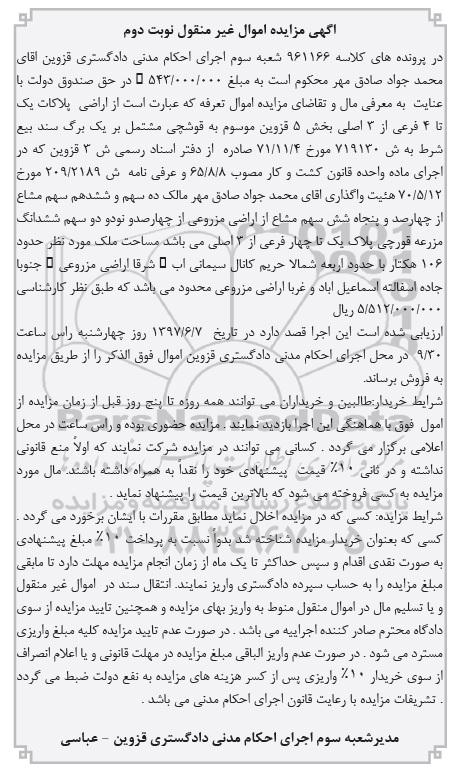 آگهی مزایده اموال غیر منقول نوبت دوم
در پرونده های کلاسه ۹۶۱۱۶۶ شعبه سوم اجرای احکام مدنی دادگستری قزوین اقای
محمد جواد صادق مهر محکوم است به مبلغ ۵۴۳/۰۰۰/۰۰۰ در حق صندوق دولت با
عنایت به معرفی مال و تقاضای مزایده اموال تعرفه که عبارت است از اراضی پلاکات یک
تا ۴ فرعی از ۳ اصلی بخش ۵ قزوین موسوم به قوشچی مشتمل بر یک برگ سند بیع
شرط به ش ۷۱۹۱۳۰ مورخ ۷۱/۱۱/۴ صادره از دفتر اسناد رسمی ش ۳ قزوین که در
اجرای ماده واحده قانون کشت و کار مصوب ۶۵/۸/۸ و عرفی نامه ش ۲۰۹/۲۱۸۹ مورخ
۷۰/۵/۱۲ هئیت واگذاری اقای محمد جواد صادق مهر مالک ده سهم و ششدهم سهم مشاع
از چهارصد و پنجاه شش سهم مشاع از اراضی مزروعی از چهارصدو نودو دو سهم ششدانگ
مزرعه قورچی پلاک یک تا چهار فرعی از ۳ اصلی می باشد مساحت ملک مورد نظر حدود
۱۰۶ هکتار با حدود اربعه شمالا حریم کانال سیمانی اب شرقا اراضی مزروعی جنوبا
جاده اسفالته اسماعیل اباد و غربا اراضی مزروعی محدود می باشد که طبق نظر کارشناسی
۵/۵۱۲/۰۰۰/۰۰۰ ریال
ارزیابی شده است این اجرا قصد دارد در تاریخ ۱۳۹۷/۶/۷ روز چهارشنبه راس ساعت
۹/۳۰ در محل اجرای احکام مدنی دادگستری قزوین اموال فوق الذکر را از طریق مزایده
به فروش برساند.
شرایط خریدار:طالبین و خریداران می توانند همه روزه تا پنج روز قبل از زمان مزایده از
امول فوق با هماهنگی این اجرا بازدید نمایند . مزایده حضوری بوده و راس ساعت در محل
اعلامی برگزار می گردد . کسانی می توانند در مزایده شرکت نمایند که اولاً منع قانونی
نداشته و در ثانی ۱۰٪ قیمت پیشنهادی خود را نقدا به همراه داشته باشند. مال مورد
مزایده به کسی فروخته می شود که بالاترین قیمت را پیشنهاد نماید .
شرایط مزایده: کسی که در مزایده اخلال نماید مطابق مقررات با ایشان برخورد می گردد .
کسی که بعنوان خریدار مزایده شناخته شد بدواً نسبت به پرداخت ۱۰٪ مبلغ پیشنهادی
به صورت نقدی اقدام و سپس حداکثر تا یک ماه از زمان انجام مزایده مهلت دارد تا مابقی
مبلغ مزایده را به حساب سپرده دادگستری واریز نمایند. انتقال سند در اموال غیر منقول
و یا تسلیم مال در اموال منقول منوط به واریز بهای مزایده و همچنین تایید مزایده از سوی
دادگاه محترم صادر کننده اجراییه می باشد . در صورت عدم تایید مزایده کلیه مبلغ واریزی
مسترد می شود . در صورت عدم واریز الباقی مبلغ مزایده در مهلت قانونی و یا اعلام انصراف
از سوی خریدار ۱۰٪ واریزی پس از کسر هزینه های مزایده به نفع دولت ضبط می گردد
. تشریفات مزایده با رعایت قانون اجرای احکام مدنی می باشد .
مدیرشعبه سوم اجرای احکام مدنی دادگستری قزوین – عباسی